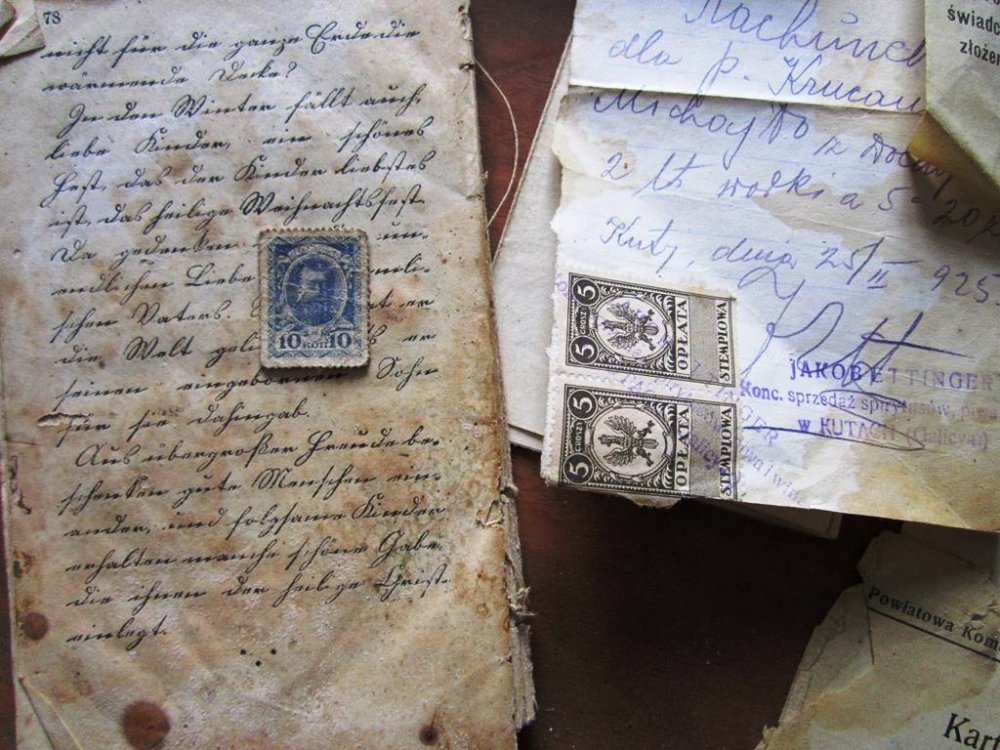 78
nicht für die ganze Erde die
wärmende Decke?
In den Winter fällt auch,
liebe Kinder, ein schönes
Fest, das der Kinder liebstes
ist, das heilige Weihnachtsfest.
Da gedenken un-
endlichen Liebe
schen Vaters. er
die Welt er
seinen eingebornen Sohn
für sie dahingab.
Aus übergroßer Freude be-
schenken gute Menschen ein-
ander, und folgsame Kinder
erhalten manche schöne Gabe,
die ihnen der heilige Christ
einlegt.
10 КОП 10
dla p.
z
2 lt wodki a 5 - 20
Kuty, dnia 25/II 925
5 GROSZY 5
OPŁATA
STEMPLOWA
5 GROSZY 5
OPŁATA
STEMPLOWA
JAKOB ETTINGER
Konc. sprzedaż
w KUTACH (Galicya)
świadc
złożen
Powiatowa Kom
Kart